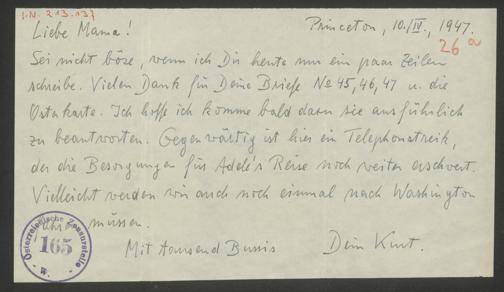 I.N. 213.137
Liebe Mama!
Princeton, 10./IV., 1947.
26a
Sei nicht böse, wenn ich Dir heute nur ein paar Zeilen
schreibe. Vielen Dank für Deine Briefe No 45, 46, 47 u. die
Osterkarte. Ich hoffe ich komme bald dazu sie ausführlich
zu beantworten. Gegenwärtig ist hier ein Telephonstreik,
der die Besorgungen für Adele's Reise noch weiter erschwert.
Vielleicht werden wir auch noch einmal nach Washington
fahren müssen.
Mit tausend Bussis Dein Kurt.
Österreichische Zensurstelle
165
W.